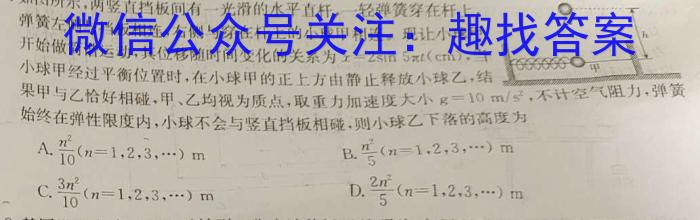 如图所示,两竖直挡板间有一光滑的水平直杆,一轻弹簧穿在杆上,
弹簧左
微信公众号关注：趣找答案
开始做 位移随时间变化的关系为 x=2sin 5πt(cm),当
小球甲经过平衡位置时,在小球甲的正上方由静止释放小球乙,结
果甲与乙恰好相碰,甲、乙均视为质点,取重力加速度大小 g=10 m/s²,不计空气阻力,弹簧
始终在弹性限度内,小球不会与竖直挡板相碰,则小球乙下落的高度为
A. n²/10 (n=1,2,3,…) m B. n²/5 (n=1,2,3,…) m
C. 3n²/10 (n=1,2,3,…) m D. 2n²/5 (n=1,2,3,…) m
乙
h
甲